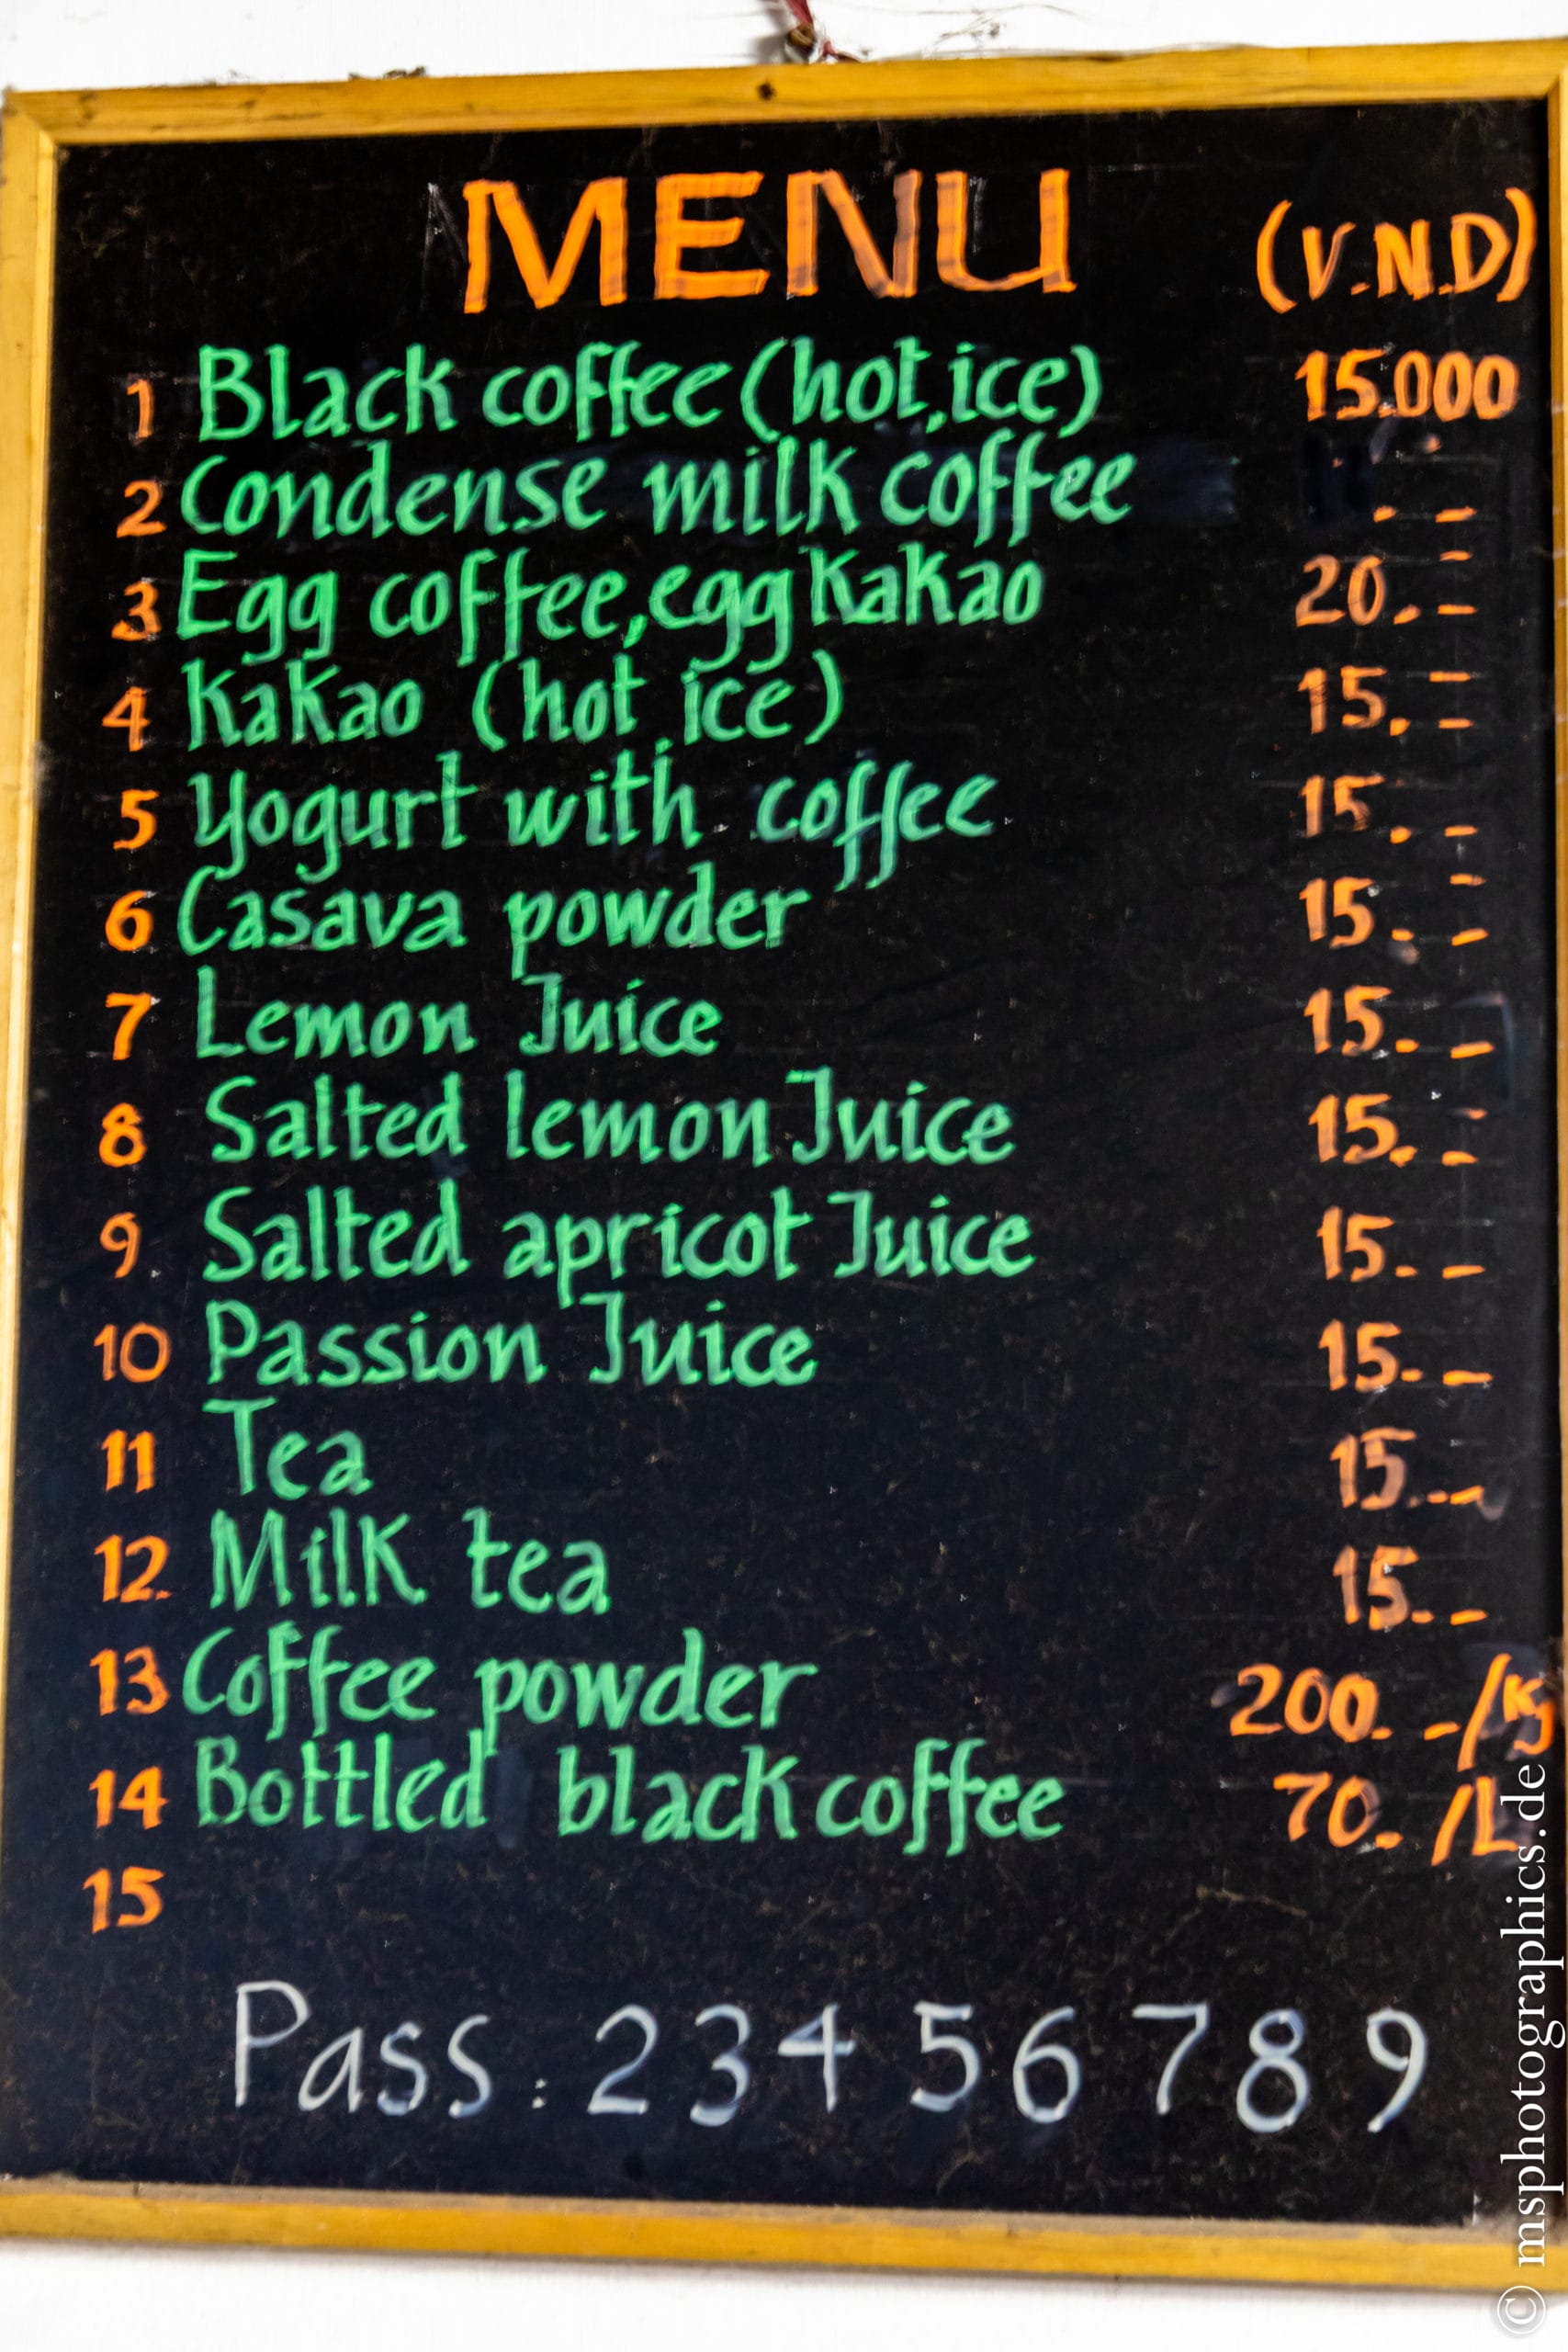 MENU (V.N.D)
1 Black coffee (hot,ice) 15.000
2 Condense milk coffee . -
3 Egg coffee,egg Kakao 20.-
4 Kakao (hot,ice) 15.-
5 Yogurt with coffee 15.-
6 Casava powder 15.-
7 Lemon Juice 15.-
8 Salted lemon Juice 15.-
9 Salted apricot Juice 15.-
10 Passion Juice 15.-
11 Tea 15.-
12. Milk tea 15.-
13 Coffee powder 200.-/Kg
14 Bottled black coffee 70./L
15
Pass: 23456789
© msphotographics.de